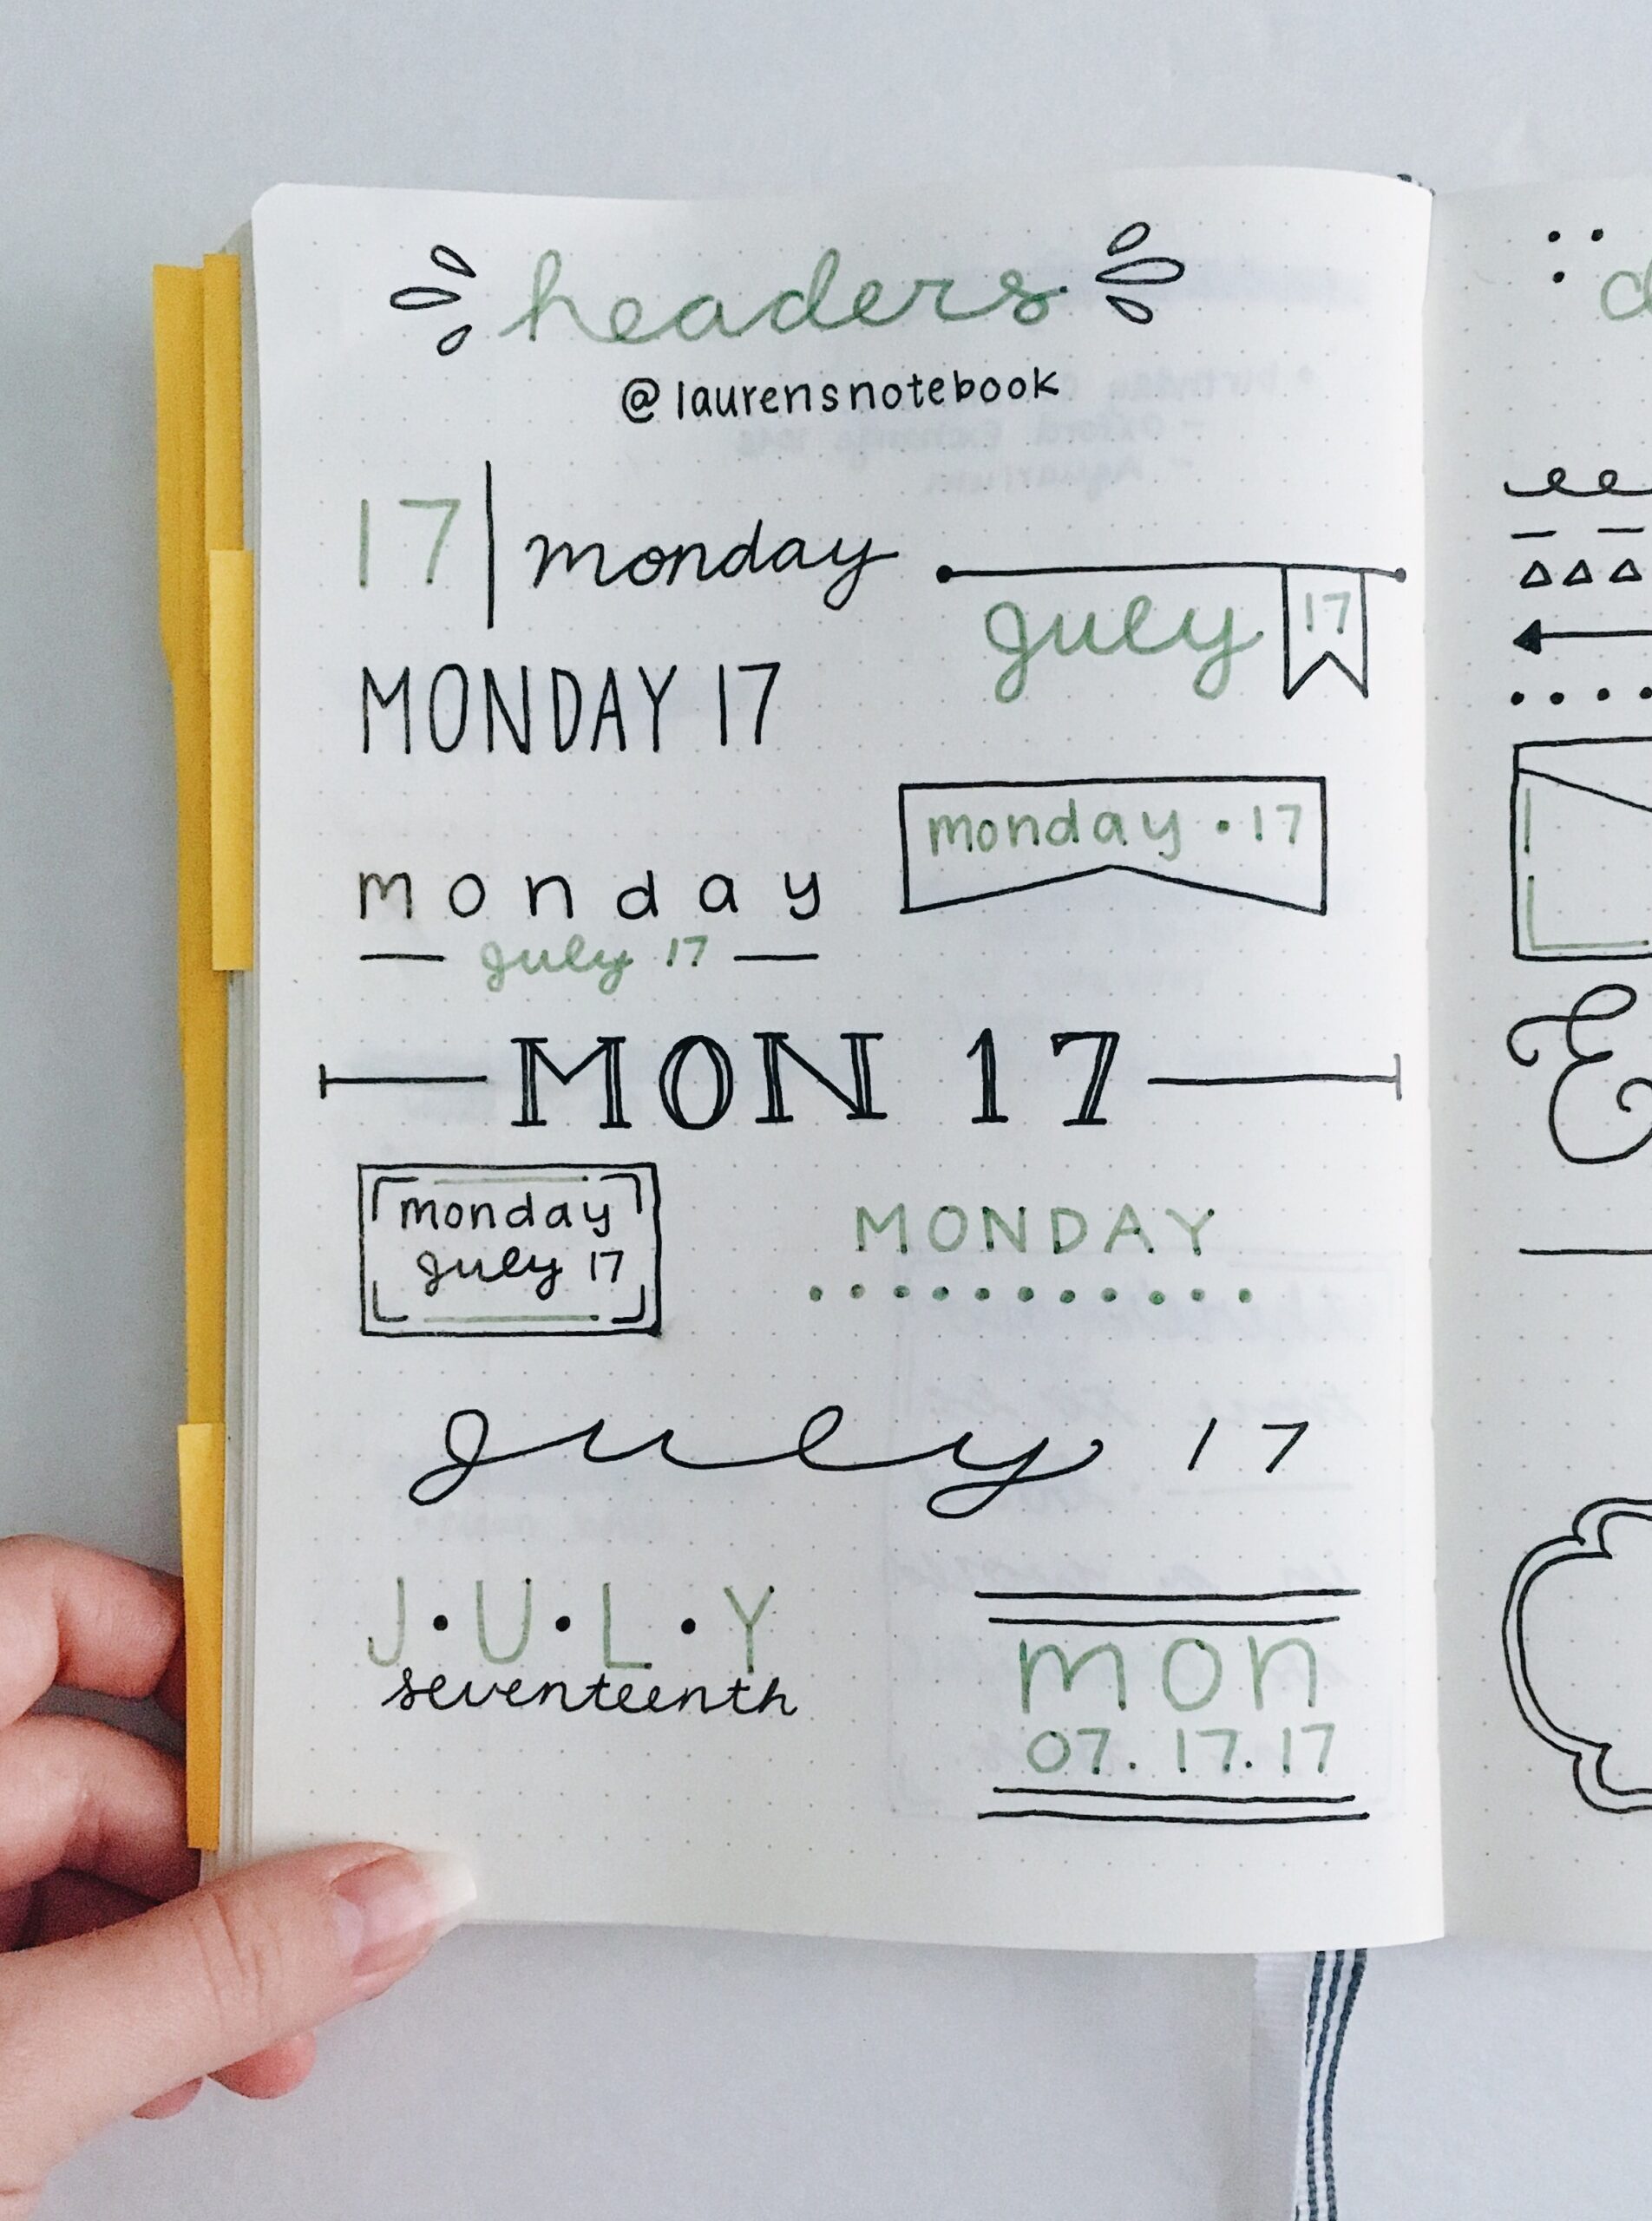 headers
@laurensnotebook
17 | monday
july 17
MONDAY 17
monday • 17
monday
— july 17 —
MON 17
monday
july 17
MONDAY
july 17
J•U•L•Y
seventeenth
mon
07.17.17